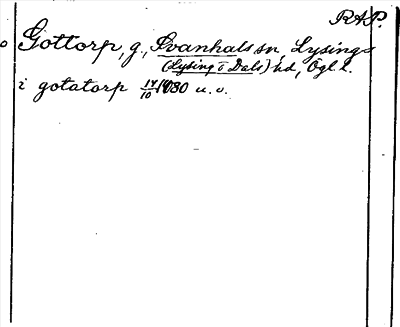 R A P.
Gottorp, g., Svanhals sn Lysings
(Lysing o Dals) hd, Ögl l.
i gotatorp 14/10 1430 u. v.